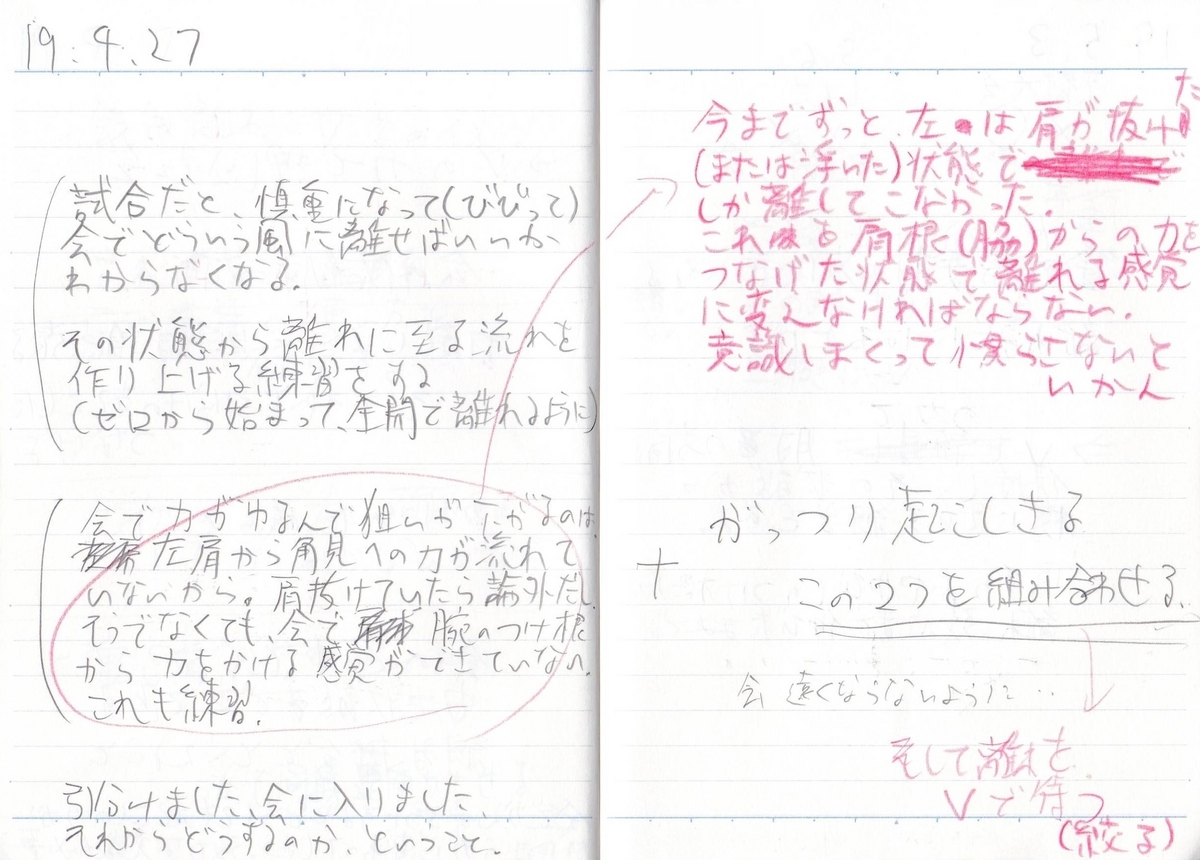 19.4.27
試合だと、慎重になって(びびって)
会でどういう風に離せばいいか
わからなくなる.
その状態から離れに至る流れを
作り上げる練習をする
(ゼロから始まって、全開で離れるように)
会で力がゆるんで狙いが下がるのは、
左肩から角見への力が流れて
いないから。肩抜けていたら論外だし、
そうでなくても、会で 腕のつけ根
から力をかける感覚ができていない.
これも練習.
引分けました、会に入りました、
それからどうするのか、ということ.
今までずっと、左は肩が抜けた
(または浮いた)状態で
しか離してこなかった.
これを肩根(脇)からの力を
つなげた状態で離れる感覚
に変えなければならない.
意識しまくって慣らさないと
いかん
がっつり起こしきる
+
この2つを組み合わせる.
会遠くならないように…
そして離れを
Vで待つ
(絞る)